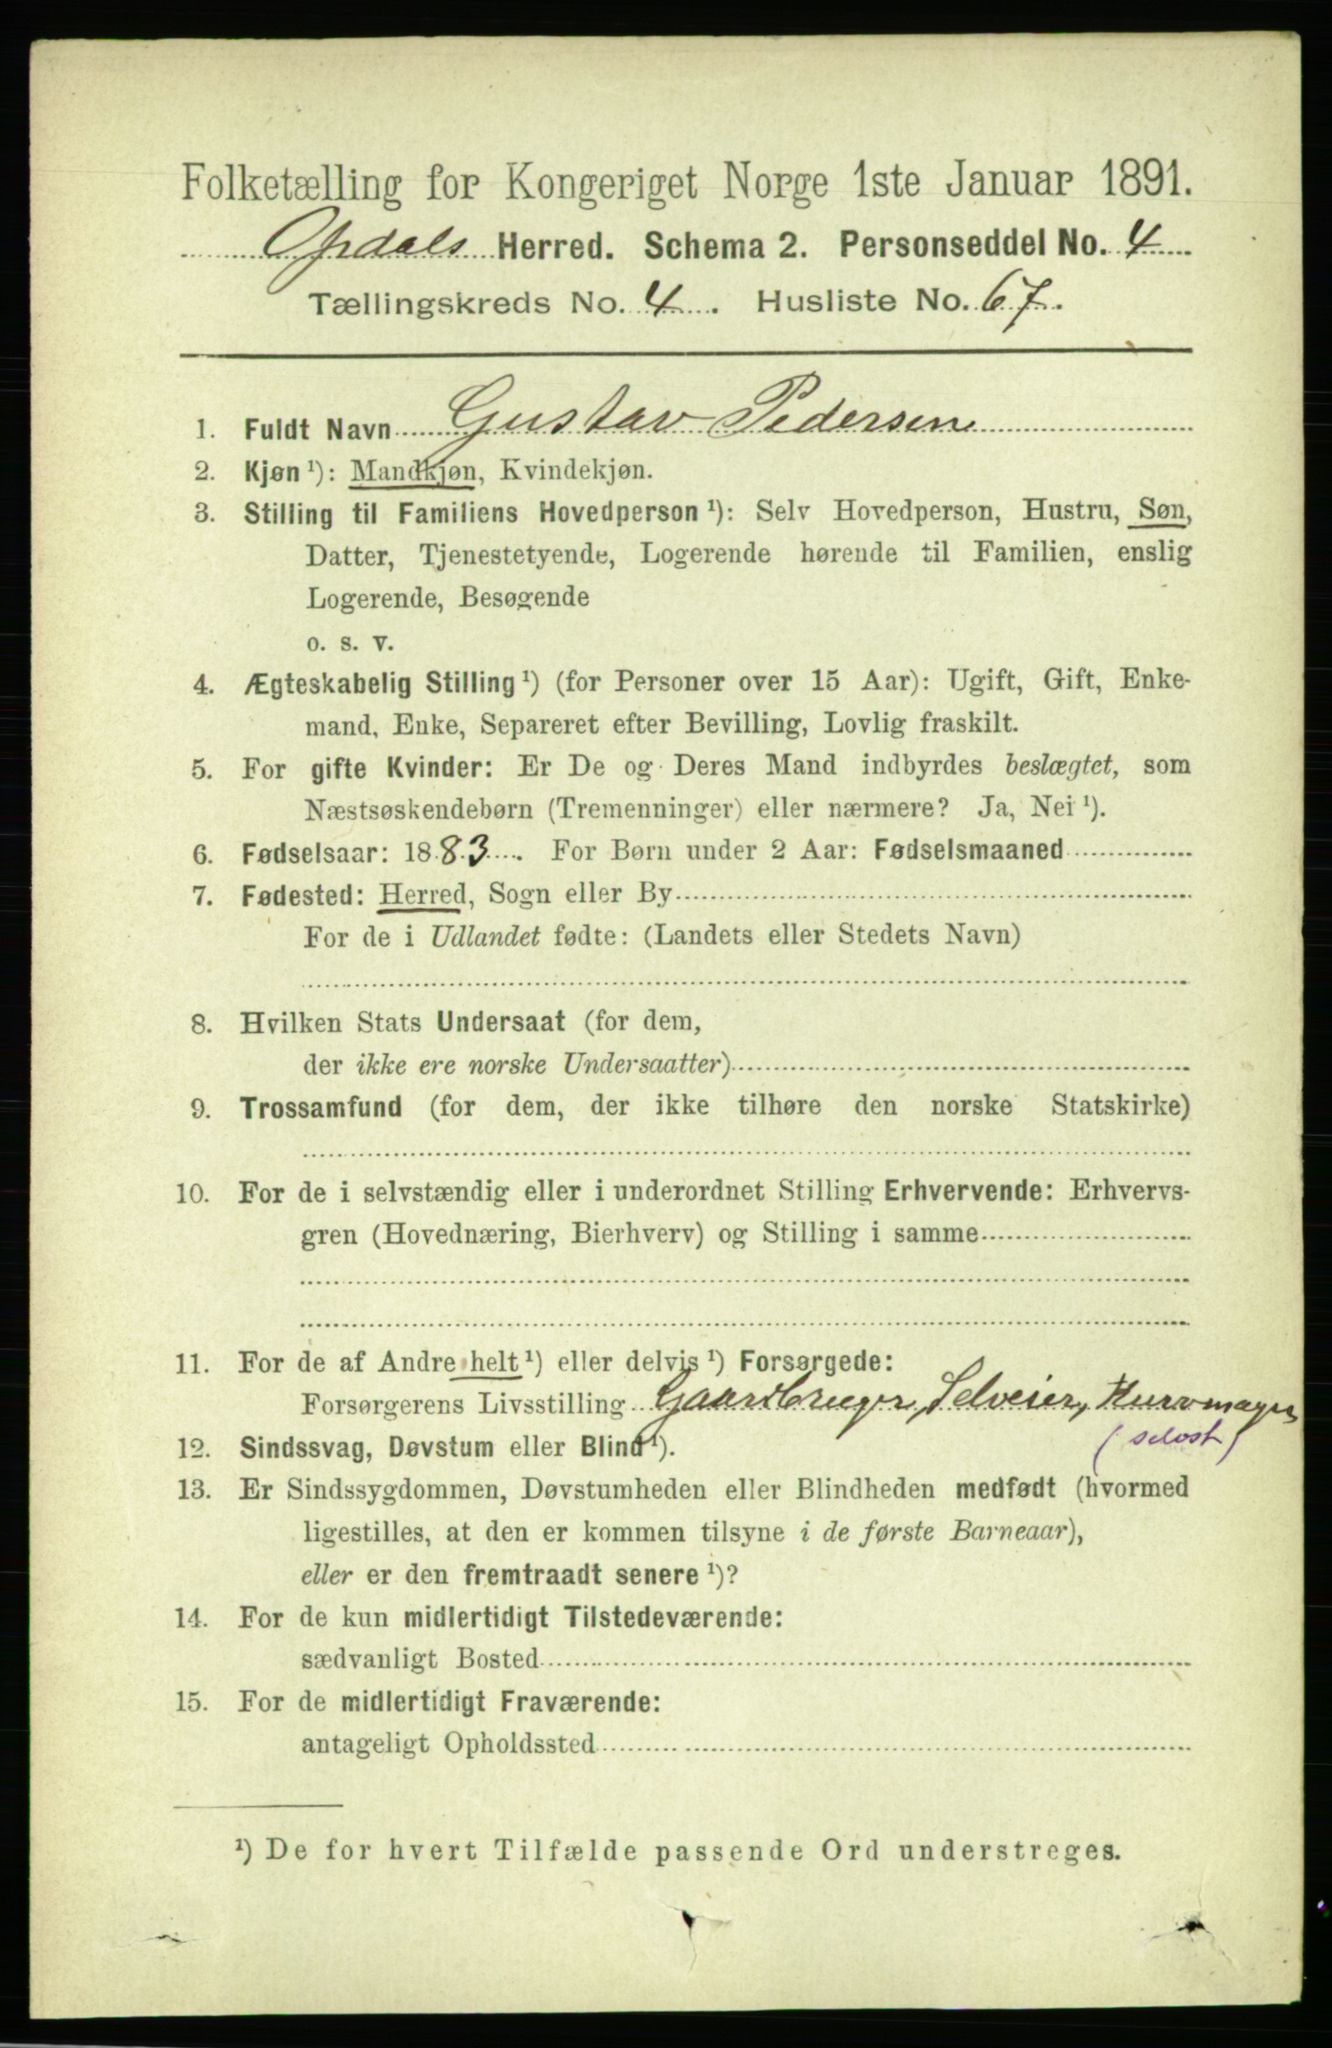 Folketælling for Kongeriget Norge 1ste Januar 1891.
Opdals Herred. Schema 2. Personseddel No. 4
Tællingskreds No. 4. Husliste No. 67.
1. Fuldt Navn Gustav Pedersen
2. Kjøn ¹): Mandkjøn, Kvindekjøn.
3. Stilling til Familiens Hovedperson ¹): Selv Hovedperson, Hustru, Søn,
Datter, Tjenestetyende, Logerende hørende til Familien, enslig
Logerende, Besøgende
o. s. v.
4. Ægteskabelig Stilling ¹) (for Personer over 15 Aar): Ugift, Gift, Enke-
mand, Enke, Separeret efter Bevilling, Lovlig fraskilt.
5. For gifte Kvinder: Er De og Deres Mand indbyrdes beslægtet, som
Næstsøskendebørn (Tremenninger) eller nærmere? Ja, Nei ¹).
6. Fødselsaar: 1883. For Børn under 2 Aar: Fødselsmaaned
7. Fødested: Herred, Sogn eller By
For de i Udlandet fødte: (Landets eller Stedets Navn)
8. Hvilken Stats Undersaat (for dem,
der ikke ere norske Undersaatter)
9. Trossamfund (for dem, der ikke tilhøre den norske Statskirke)
10. For de i selvstændig eller i underordnet Stilling Erhvervende: Erhvervs-
gren (Hovednæring, Bierhverv) og Stilling i samme
11. For de af Andre helt ¹) eller delvis ¹) Forsørgede:
Forsørgerens Livsstilling Gaardbruger, Selveier, Kurvmager
(selvst)
12. Sindssvag, Døvstum eller Blind ¹).
13. Er Sindssygdommen, Døvstumheden eller Blindheden medfødt (hvormed
ligestilles, at den er kommen tilsyne i de første Barneaar),
eller er den fremtraadt senere ¹)?
14. For de kun midlertidigt Tilstedeværende:
sædvanligt Bosted
15. For de midlertidigt Fraværende:
antageligt Opholdssted
¹) De for hvert Tilfælde passende Ord understreges.